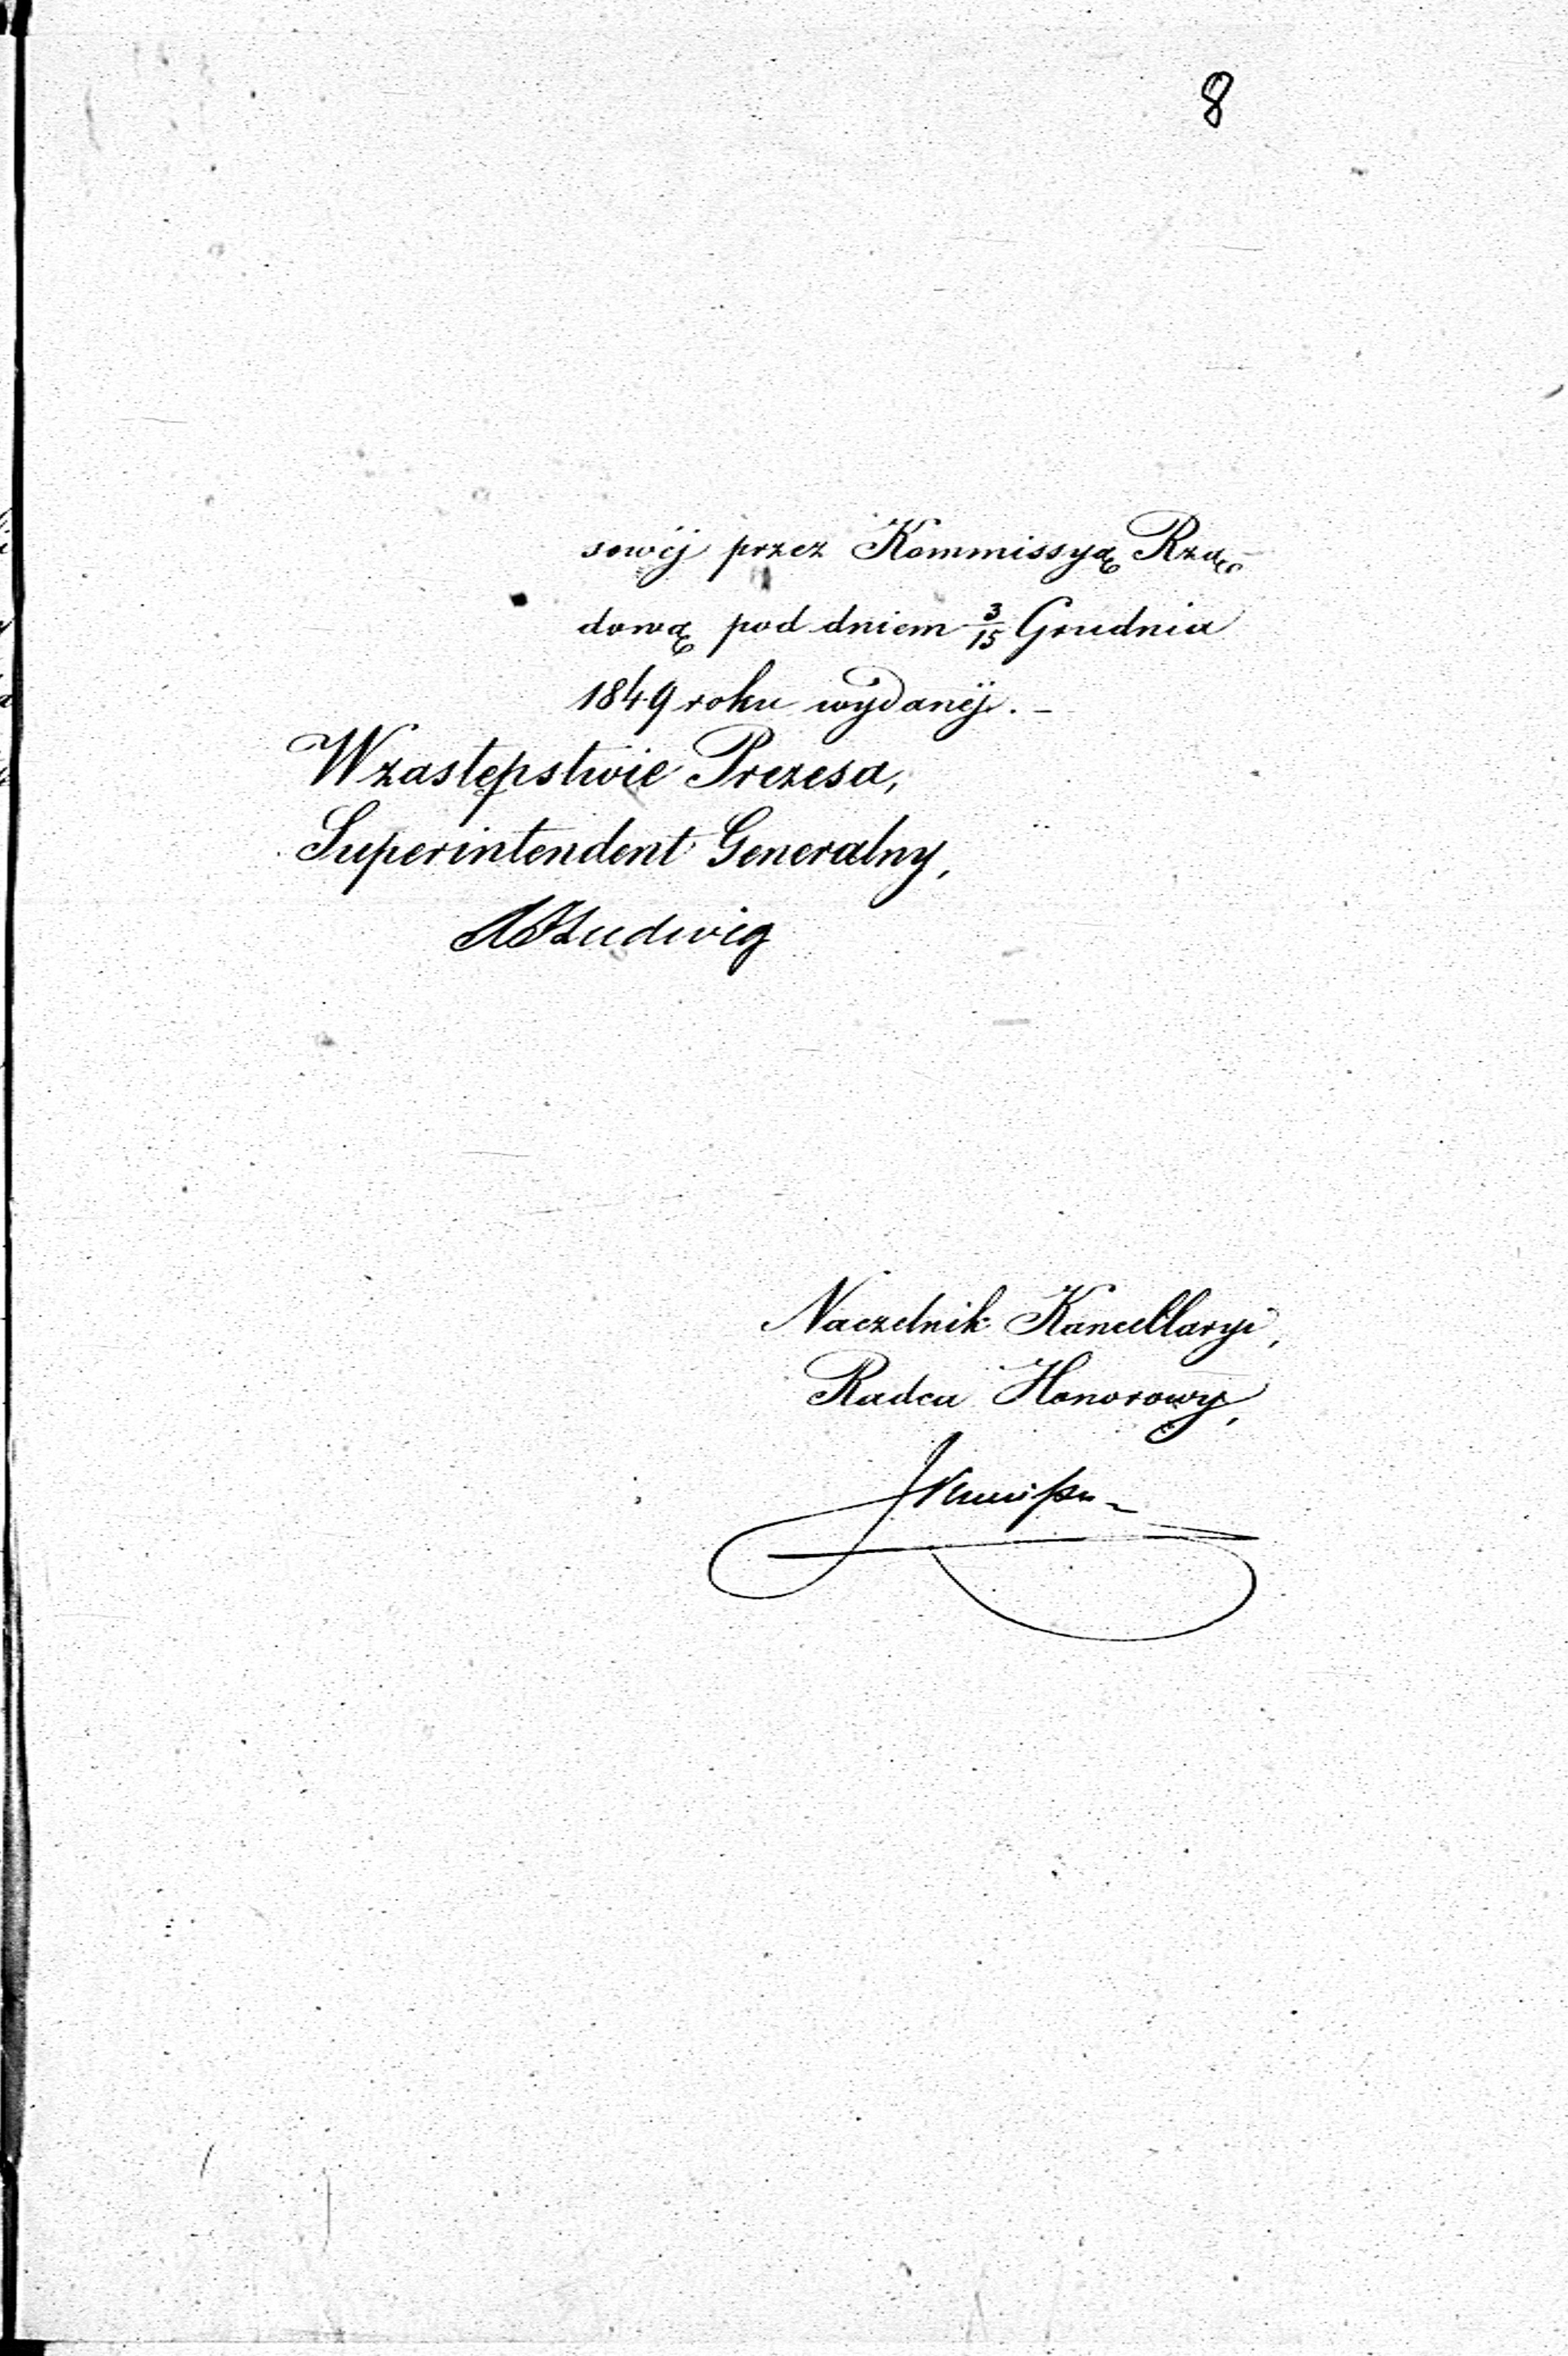 8
sowéj przez Kommissyą Rzą-
dową pod dniem 3/15 Grudnia
1849 roku wydanéj. -
W zastępstwie Prezesa,
Superintendent Generalny,
Ludwig
Naczelnik Kancellaryi,
Radca Honorowy,